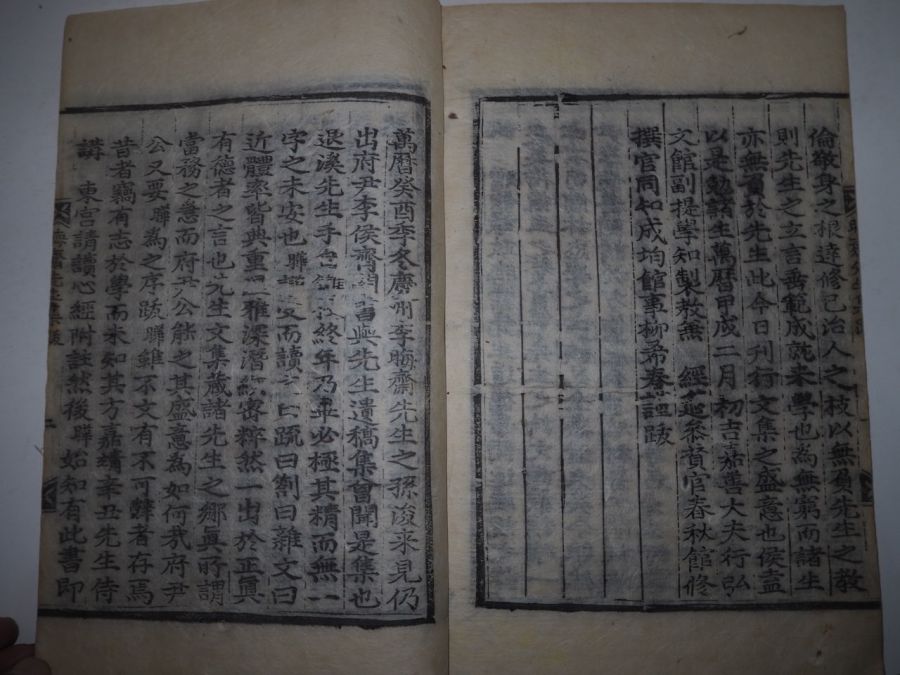 倫敬身之根達修己治人之枝以無負先生之教
則先生之立言垂範成就来學也為無窮而諸生
亦無負於先生此今日刊行文集之盛意也侯盍
以是勉諸生萬曆甲戌二月初吉嘉善大夫行弘
文館副提學知製教兼 經筵參賛官春秋館修
撰官同知成均館事柳希春謹跋
萬曆癸酉季冬慶州李晦齋先生之孫浚来見仍
出府尹李侯齊閔書與先生遺稿集曾聞是集也
退溪先生手 終年乃 必極其精而無一
字之未安也 而讀之曰疏曰劄曰雜文曰
近體率皆典重 雅深潛縝密粹然一出於正眞
有德者之言也先生文集蔵諸先生之鄉眞所謂
當務之急而府尹公能之其盛意為如何哉府尹
公又要驊為之序跋驊雖不文有不可辭者存焉
昔者竊有志於學而未知其方嘉靖辛丑先生侍
講 東宮請讀心經附註然後驊始知有此書即